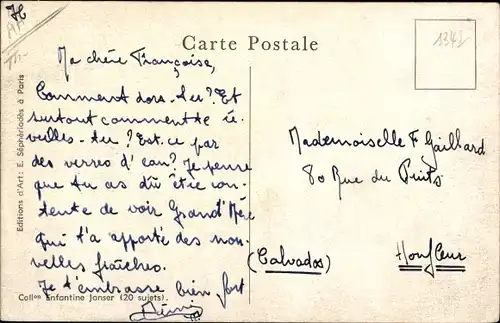 Carte Postale
1342
Ma chère Françoise,
Comment dors-tu? Et
surtout comment te ré-
veilles-tu? Est-ce par
des verres d'eau? Je pense
que tu as dû être con-
tente de voir Grand'Mère
qui t'a apporté des nou-
velles fraîches.
Je t'embrasse bien fort
Rémi
Mademoiselle F Gaillard
80 Rue du Puits
Honfleur
(Calvados)
Editions d'Art: E. Séphériadès à Paris
Collon Enfantine Janser (20 sujets).